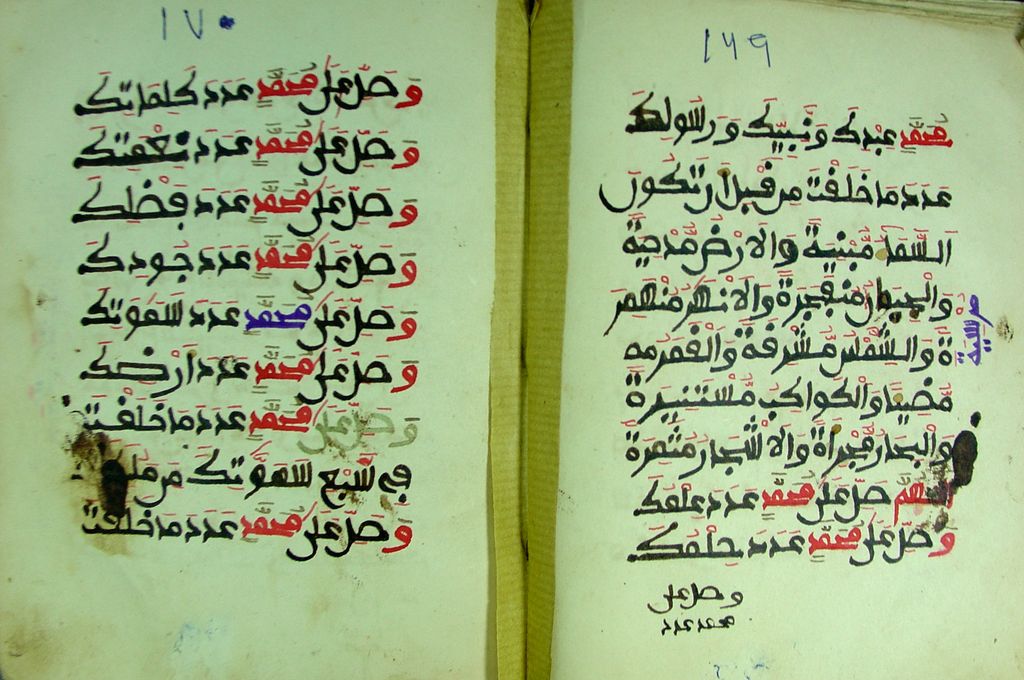 ١٦٩
محمد عبدك ونبيك ورسولك
عدد ما خلقت من قبل ان تكون
السماء مبنية والارض مدحية
والجبال منفجرة والانهر منهمر
مرسية
ة والشمس مشرقة والقمر
مضيا والكواكب مستنيرة
والبحار مجراة والاشجار مثمرة
اللهم صل على محمد عدد علمك
وصل على محمد عدد حلمك
وصل على
محمد عدد
١٧٠
وصل على محمد عدد كلماتك
وصل على محمد عدد نعمتك
وصل على محمد عدد فضلك
وصل على محمد عدد جودك
وصل على محمد عدد سموتك
وصل على محمد عدد ارضك
وصل على محمد عدد ما خلقت
في سبع سموتك من
وصل على محمد عدد ما خلقت